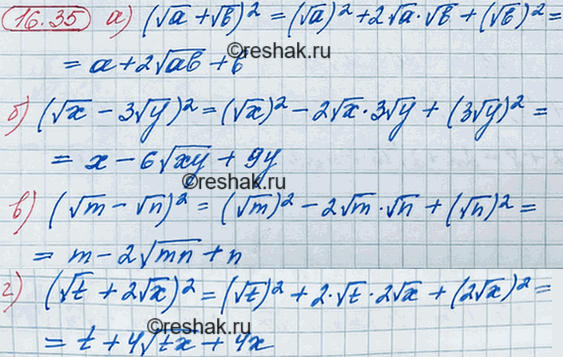 16.35 а) (√a + √b)² = (√a)² + 2√a·√b + (√b)² =
©reshak.ru
= a + 2√ab + b
б) (√x − 3√y)² = (√x)² − 2√x·3√y + (3√y)² =
= x − 6√xy + 9y
©reshak.ru
в) (√m − √n)² = (√m)² − 2√m·√n + (√n)² =
= m − 2√mn + n
г) (√t + 2√x)² = (√t)² + 2·√t·2√x + (2√x)² =
= t + 4√tx + 4x
©reshak.ru